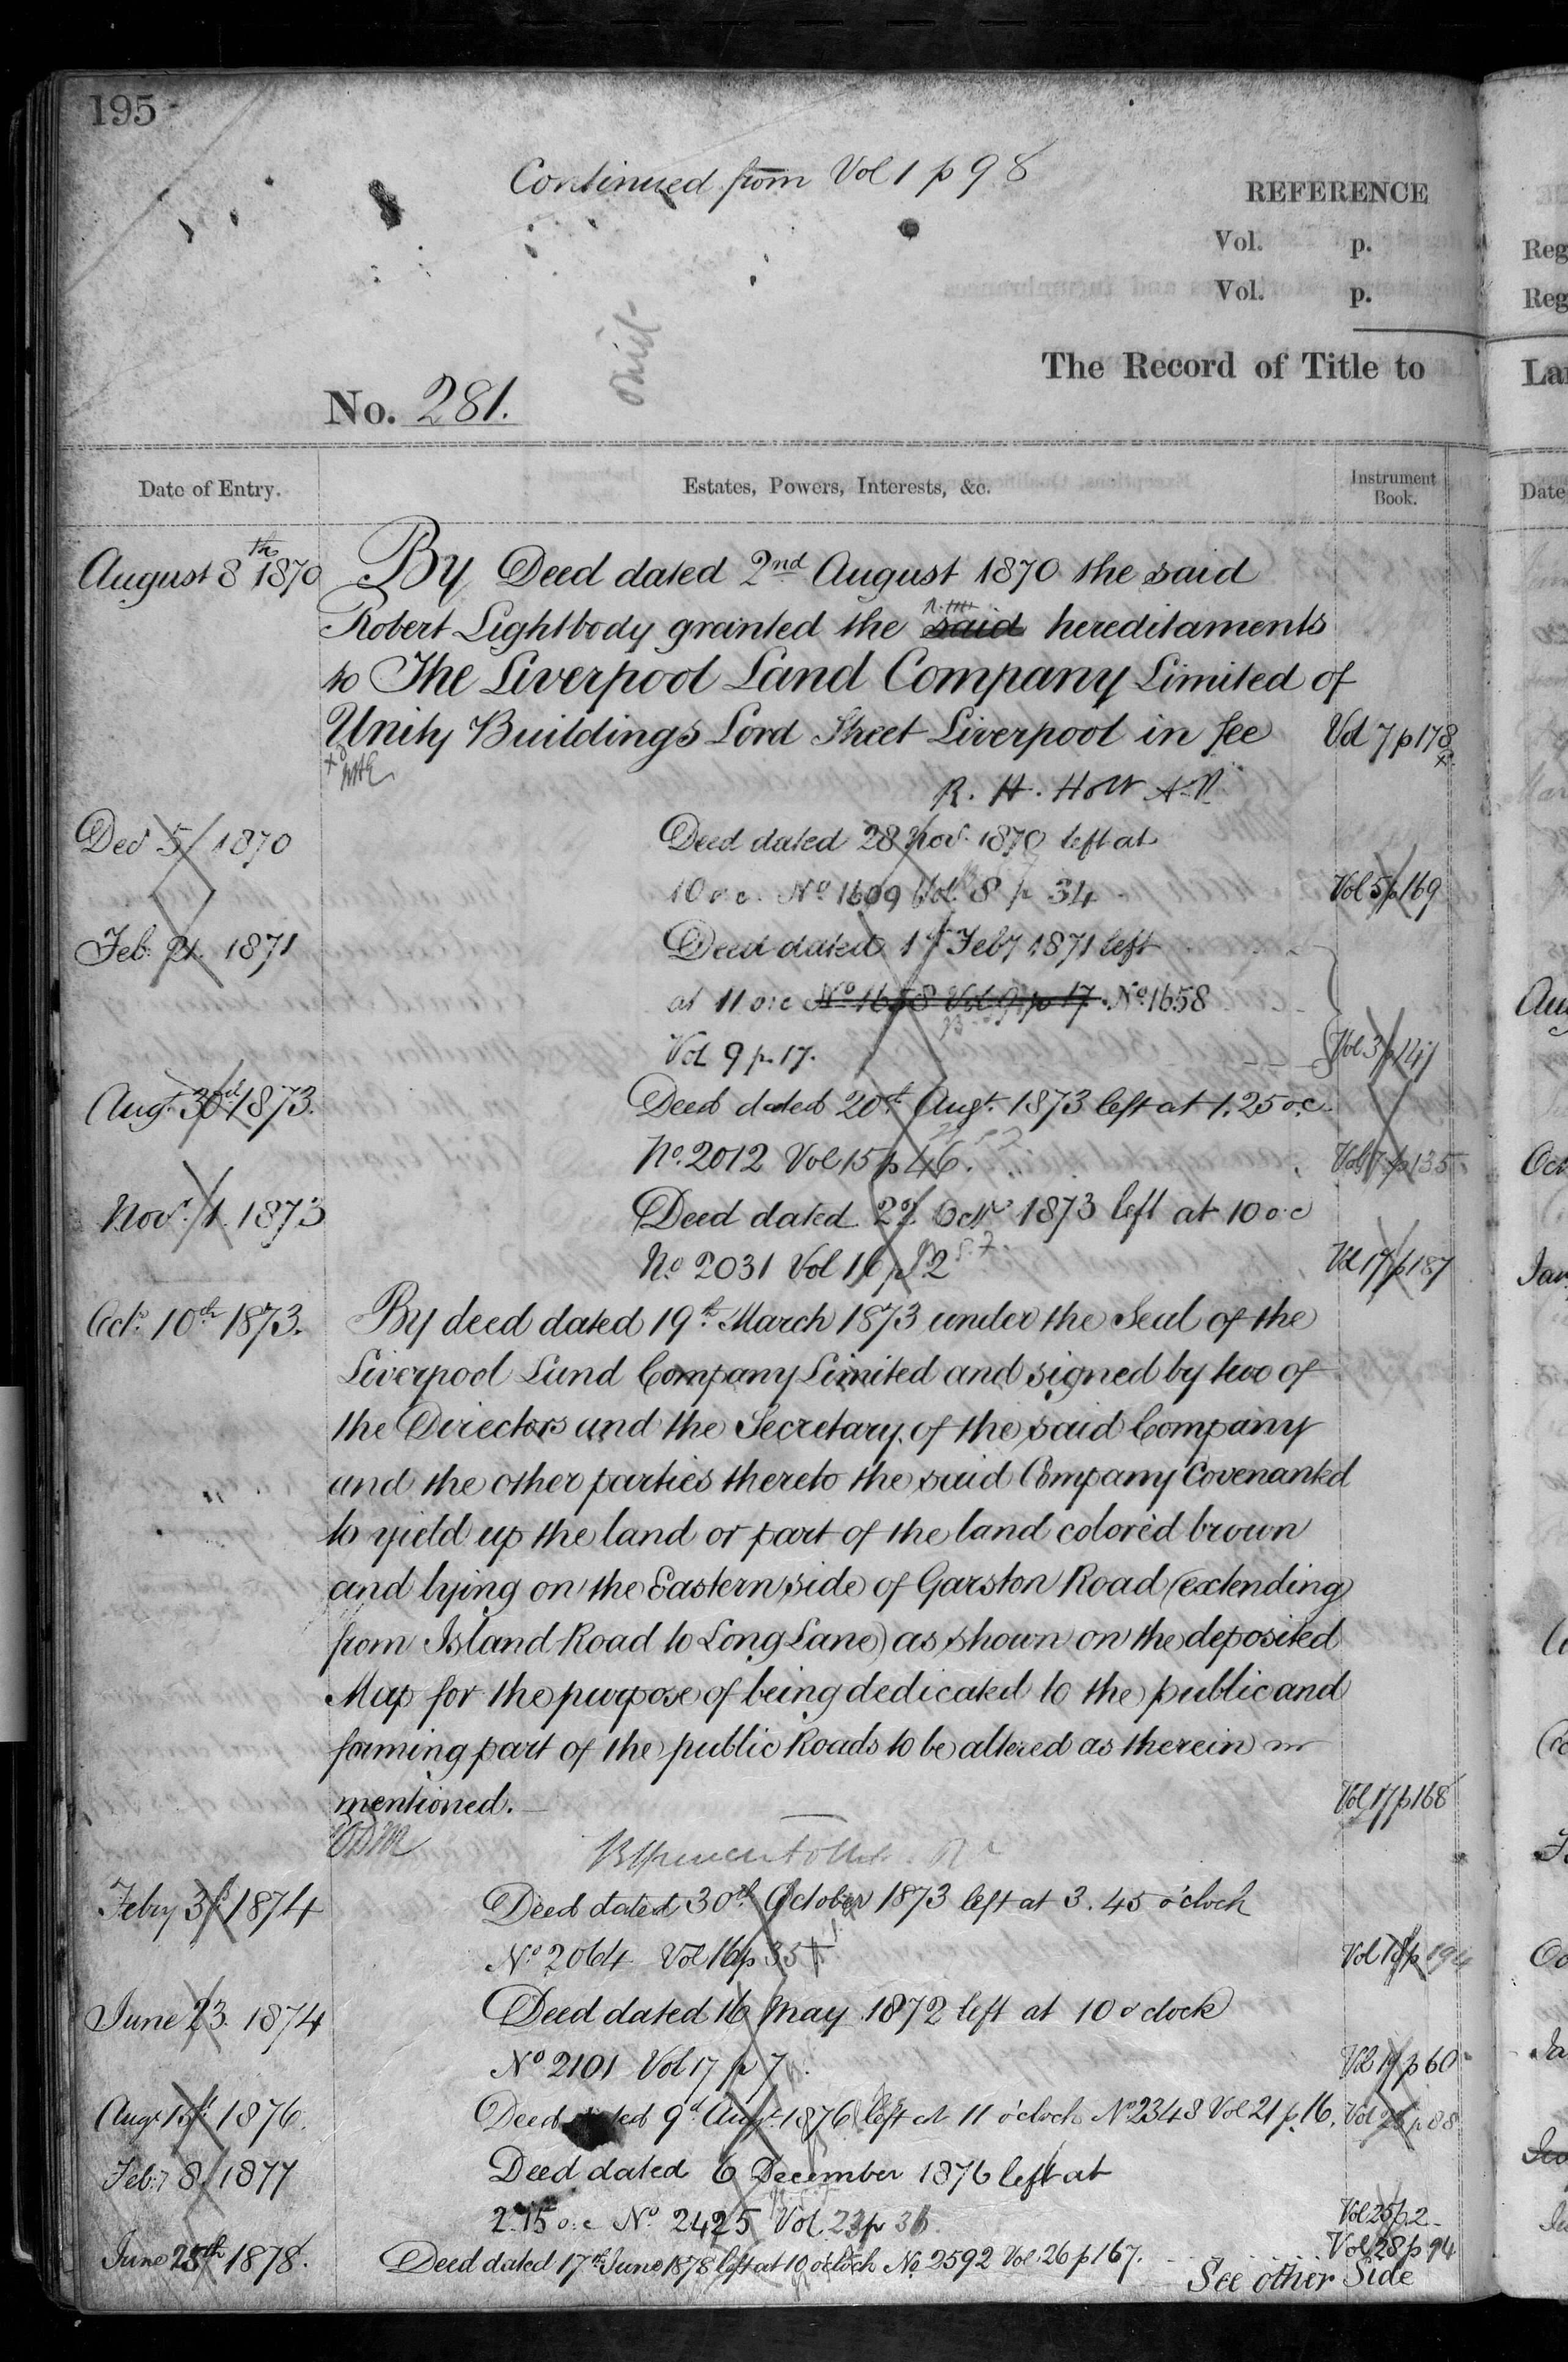 195
Continued from Vol 1 p 98
REFERENCE
Vol. p.
Vol. p.
The Record of Title to
No. 281.
Date of Entry. Estates, Powers, Interests, &c. Instrument Book.
August 8th 1870 By Deed dated 2nd August 1870 the said
Robert Lightbody granted the said hereditaments
to The Liverpool Land Company Limited of
Unity Buildings Lord Street Liverpool in fee Vol 7 p 178
R. H. Holt
Decr 5 / 1870 Deed dated 28 Novr 1870 left at
10 o.c. No 1609 Vol. 8 p 34 Vol 5 p 169
Feb: 21. 1871 Deed dated 1st Feby 1871 left
at 11 o:c No 1658 Vol 9 p 17. No. 1658
Vol 9 p. 17. Vol 3 p 141
Augt. 30th 1873. Deed dated 20th Augt. 1873 left at 1.25 o.c.
No. 2012 Vol 15 p 46. Vol 17 p 135
Novr. 1. 1873 Deed dated 27 Octr 1873 left at 10 o.c
No. 2031 Vol 16 p 2 Vol 17 p 187
Octr. 10th 1873. By deed dated 19th March 1873 under the Seal of the
Liverpool Land Company Limited and signed by two of
the Directors and the Secretary of the said Company
and the other parties thereto the said Company Covenanted
to yield up the land or part of the land colored brown
and lying on the Eastern side of Garston Road (extending
from Island Road to Long Lane) as shown on the deposited
Map for the purpose of being dedicated to the public and
forming part of the public Roads to be altered as therein
mentioned. Vol 17 p 168
Febry 3d 1874 Deed dated 30th October 1873 left at 3.45 o'clock
No. 2064 Vol 16 p 35 Vol 18 p 194
June 23. 1874 Deed dated 16 May 1872 left at 10 o'clock
No 2101 Vol 17 p 7. Vol 19 p 60
Augt 1876. Deed dated 9th Augt. 1876 left at 11 o'clock No 2348 Vol 21 p. 16. Vol p 88
Feby 8 / 1877 Deed dated 6 December 1876 left at
2.15 o:c No. 2425 Vol. 23 p 36. Vol 25 p. 2
June 25th 1878. Deed dated 17th June 1878 left at 10 o'clock No. 2592 Vol. 26 p 167. Vol 28 p 94
See other Side